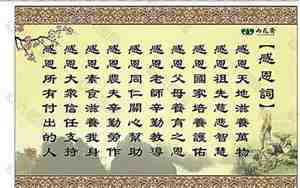 【感恩詞】
感恩天地滋養萬物
感恩祖先慈悲智慧
感恩國家培養護佑
感恩父母養育之恩
感恩老師辛勤教導
感恩同仁關心幫助
感恩農夫辛勤勞作
感恩素食滋養我身
感恩大衆信任支持
感恩所有付出的人